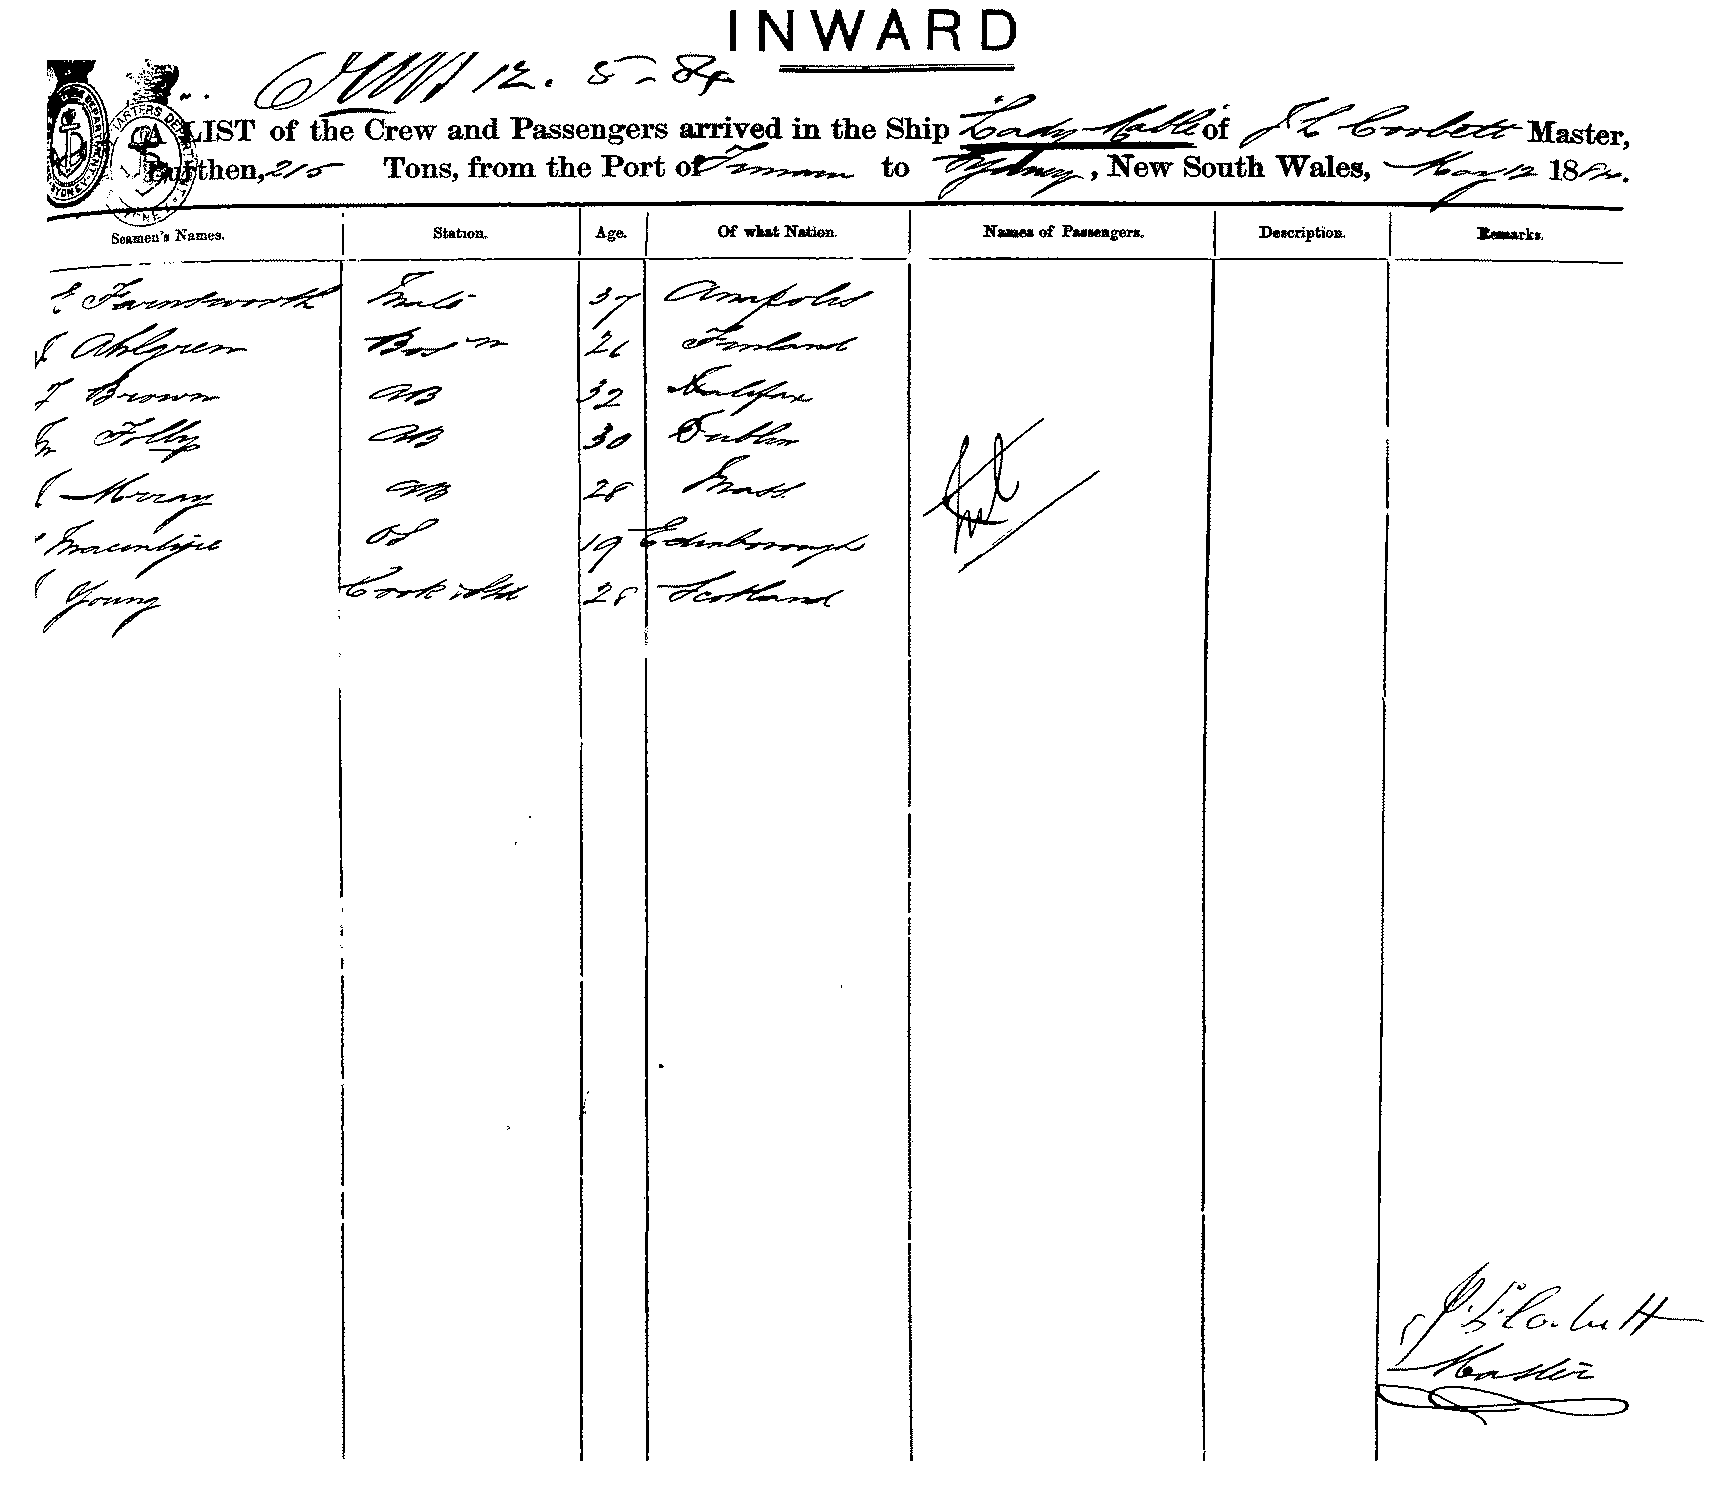 INWARD
12. 5-84
A LIST of the Crew and Passengers arrived in the Ship Lady Mable of J L Corbett Master,
Burthen, 215 Tons, from the Port of to Sydney, New South Wales, May 12 1884.
Seamen's Names. Station. Age. Of what Nation. Names of Passengers. Description. Remarks.
E Farnsworth Mate 37 Anapolis
J Ahlgren Bos'n 26 Finland
F Brown AB 32 Halifax
M Folly AB 30 Dublin Nil
Mrray AB 28 Mass
Macentyre OS 19 Edinborough
Young Cook & Std 28 Scotland
J. L. Corbett
Master